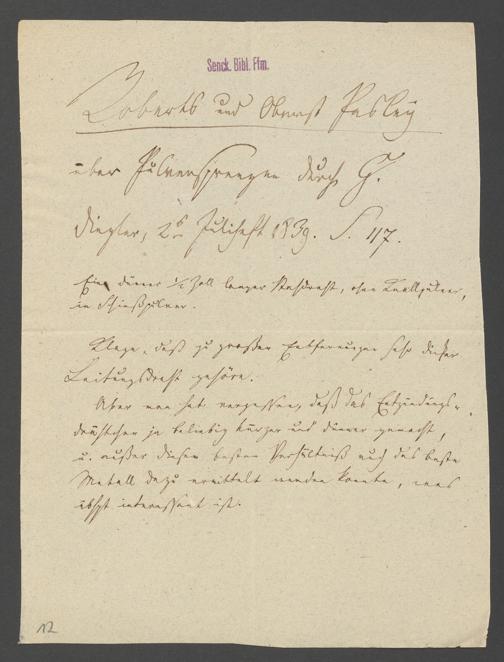 Senck. Bibl. Ffm.
Roberts und Oberst Pasley
über Pulversprengen durch G.
Dingler, 2s Juliheft 1839. S. 117.
Ein dünner 1/2 Zoll langer Stahldraht, ohne Knallpulver,
in Schießpulver.
Klage, daß zu großen Entfernungen sehr dicker
Leitungsdraht gehöre.
Aber man hat vergessen, daß das Entzündungs-
drähtchen ja beliebig kürzer und dünner gemacht,
u. außer diesem besten Verhältniß auch das beste
Metall dazu ermittelt werden konnte, was
höchst interessant ist.
12